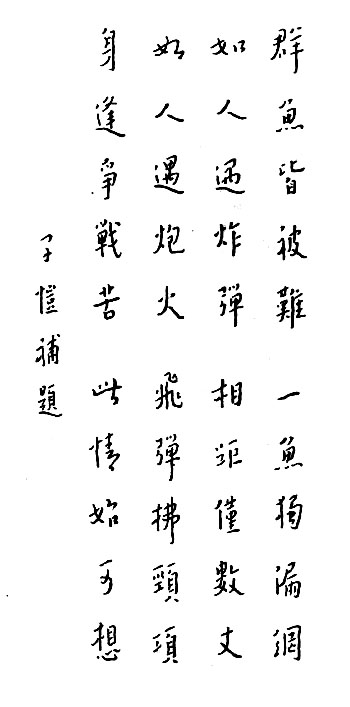 群魚皆被難 一魚獨漏網
如人遇炸彈 相距僅數丈
如人遇炮火 飛彈拂頸項
身逢爭戰苦 此情始可想
子愷補題